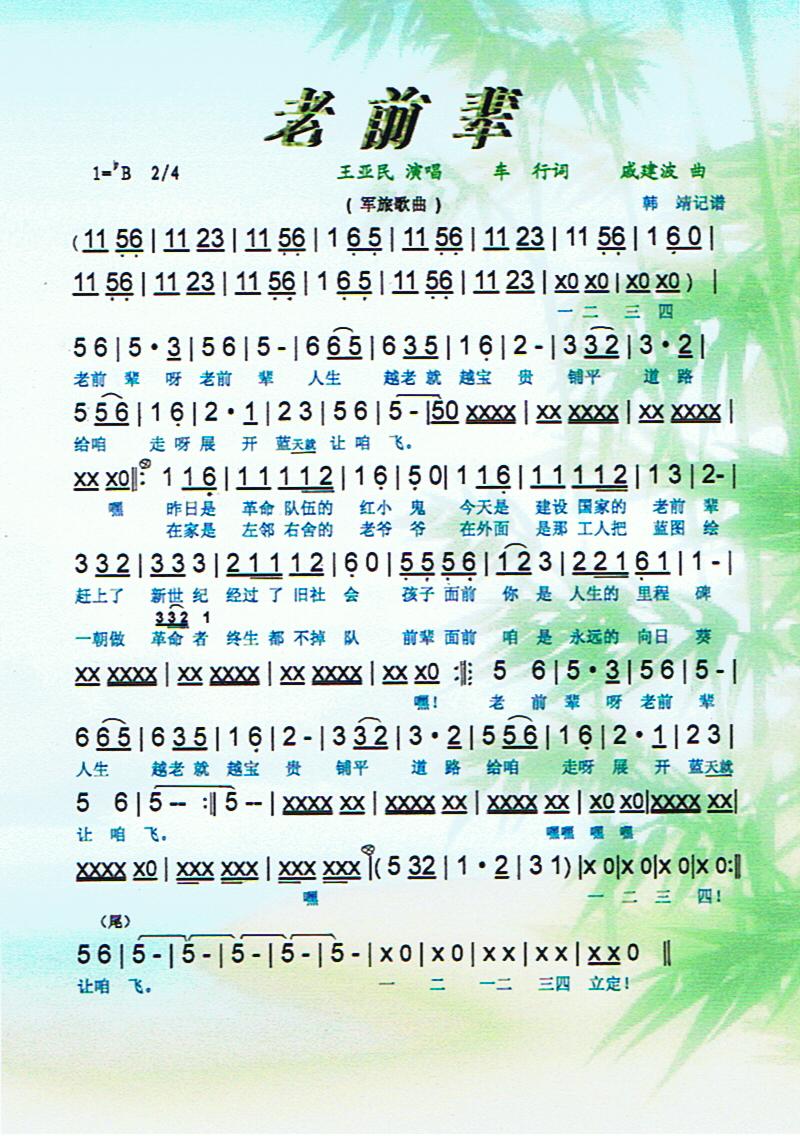 老前辈
1=♭B 2/4 王亚民 演唱 车 行词 戚建波 曲
(军旅歌曲) 韩 靖记谱
(11 56 | 11 23 | 11 56 | 1 6 5 | 11 56 | 11 23 | 11 56 | 1 6 0 |
11 56 | 11 23 | 11 56 | 1 6 5 | 11 56 | 11 23 | x0 x0 | x0 x0 ) |
一 二 三 四
5 6 | 5 · 3 | 5 6 | 5 - | 6 6 5 | 6 3 5 | 1 6 | 2 - | 3 3 2 | 3 · 2 |
老前 辈 呀 老前 辈 人生 越老 就 越宝 贵 铺平 道 路
5 5 6 | 1 6 | 2 · 1 | 2 3 | 5 6 | 5 - | 50 xxxx | xx xxxx | xx xxxx |
给咱 走 呀 展 开 蓝天就 让 咱 飞。
xx x0 ‖: 1 1 6 | 1 1 1 1 2 | 1 6 | 5 0 | 1 1 6 | 1 1 1 1 2 | 1 3 | 2- |
嘿 昨日是 革命 队伍的 红小 鬼 今天是 建设 国家的 老前 辈
在家是 左邻 右舍的 老爷 爷 在外面 是那 工人把 蓝图 绘
3 3 2 | 3 3 3 | 2 1 1 1 2 | 6 0 | 5 5 5 6 | 1 2 3 | 2 2 1 6 1 | 1 - |
赶上了 新世 纪 经过 了 旧社 会 孩子 面前 你 是 人生的 里程 碑
3 3 2 1
一朝做 革命 者 终生 都 不掉 队 前辈 面前 咱 是 永远的 向日 葵
xx xxxx | xx xxxx | xx xxxx | xx x0 :‖: 5 6 | 5 · 3 | 5 6 | 5 - |
嘿! 老 前 辈 呀 老前 辈
6 6 5 | 6 3 5 | 1 6 | 2 - | 3 3 2 | 3 · 2 | 5 5 6 | 1 6 | 2 · 1 | 2 3 |
人生 越老 就 越宝 贵 铺平 道 路 给咱 走呀 展 开 蓝天就
5 6 | 5 -- :‖ 5 -- | xxxx xx | xxxx xx | xxxx xx | x0 x0 | xxxx xx |
让 咱 飞。 嘿嘿 嘿 嘿
xxxx x0 | xxx xxx | xxx xxx | ( 5 32 | 1 · 2 | 3 1) | x 0 | x 0 | x 0 | x 0 :‖
嘿 一 二 三 四!
(尾)
5 6 | 5 - | 5 - | 5 - | 5 - | 5 - | x 0 | x 0 | x x | x x | x x 0 ‖
让咱 飞。 一 二 一二 三四 立定!